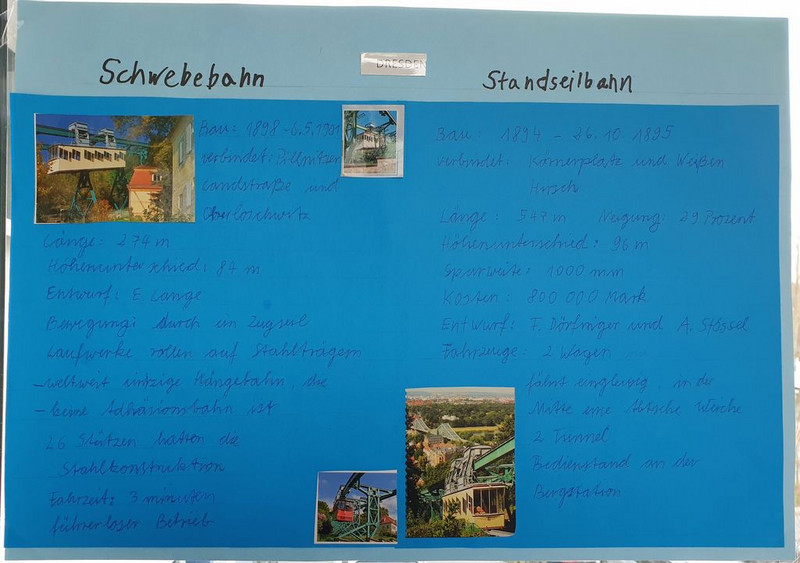 DRESDEN
Schwebebahn
Bau: 1898 - 6.5.1901
verbindet: Pillnitzer
Landstraße und
Oberloschwitz
Länge: 274 m
Höhenunterschied: 84 m
Entwurf: E. Lange
Bewegung: durch ein Zugseil
Laufwerke rollen auf Stahlträgern
- weltweit einzige Hängebahn, die
- keine Adhäsionsbahn ist
Stützen halten die
Stahlkonstruktion
Fahrzeit: 3 minuten
führerloser Betrieb
Standseilbahn
Bau: 1894 - 26.10 1895
verbindet: Körnerplatz und Weißen
Hirsch
Länge: 547 m Neigung: 29 Prozent
Höhenunterschied: 96 m
Spurweite: 1000 mm
Kosten: 800 000 Mark
Entwurf: F. und A. Stössel
Fahrzeuge: 2 Wagen
fährt eingleisig, in der
Mitte eine Abtsche Weiche
2 Tunnel
Bedienstand an der
Bergstation